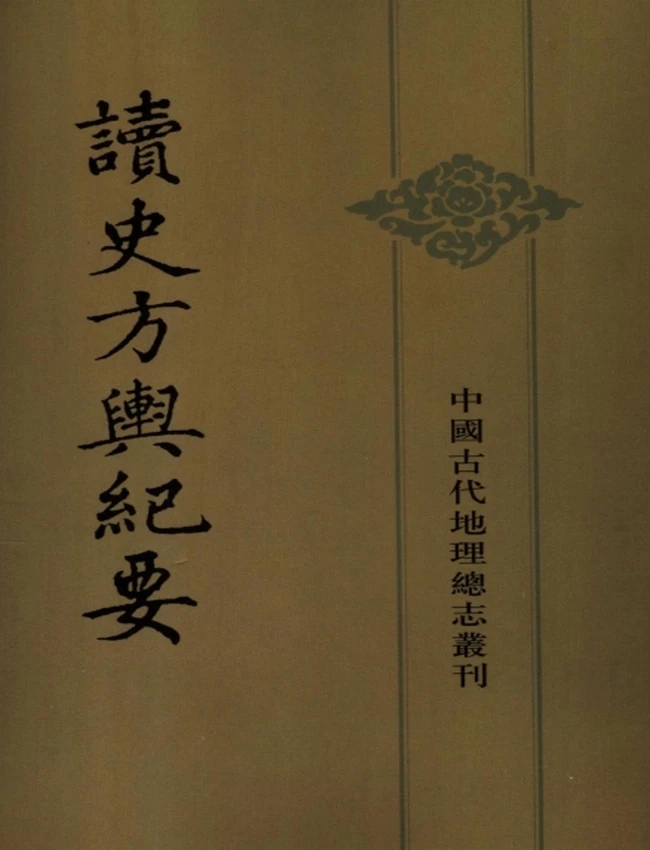 中國古代地理總志叢刊
讀史方輿紀要